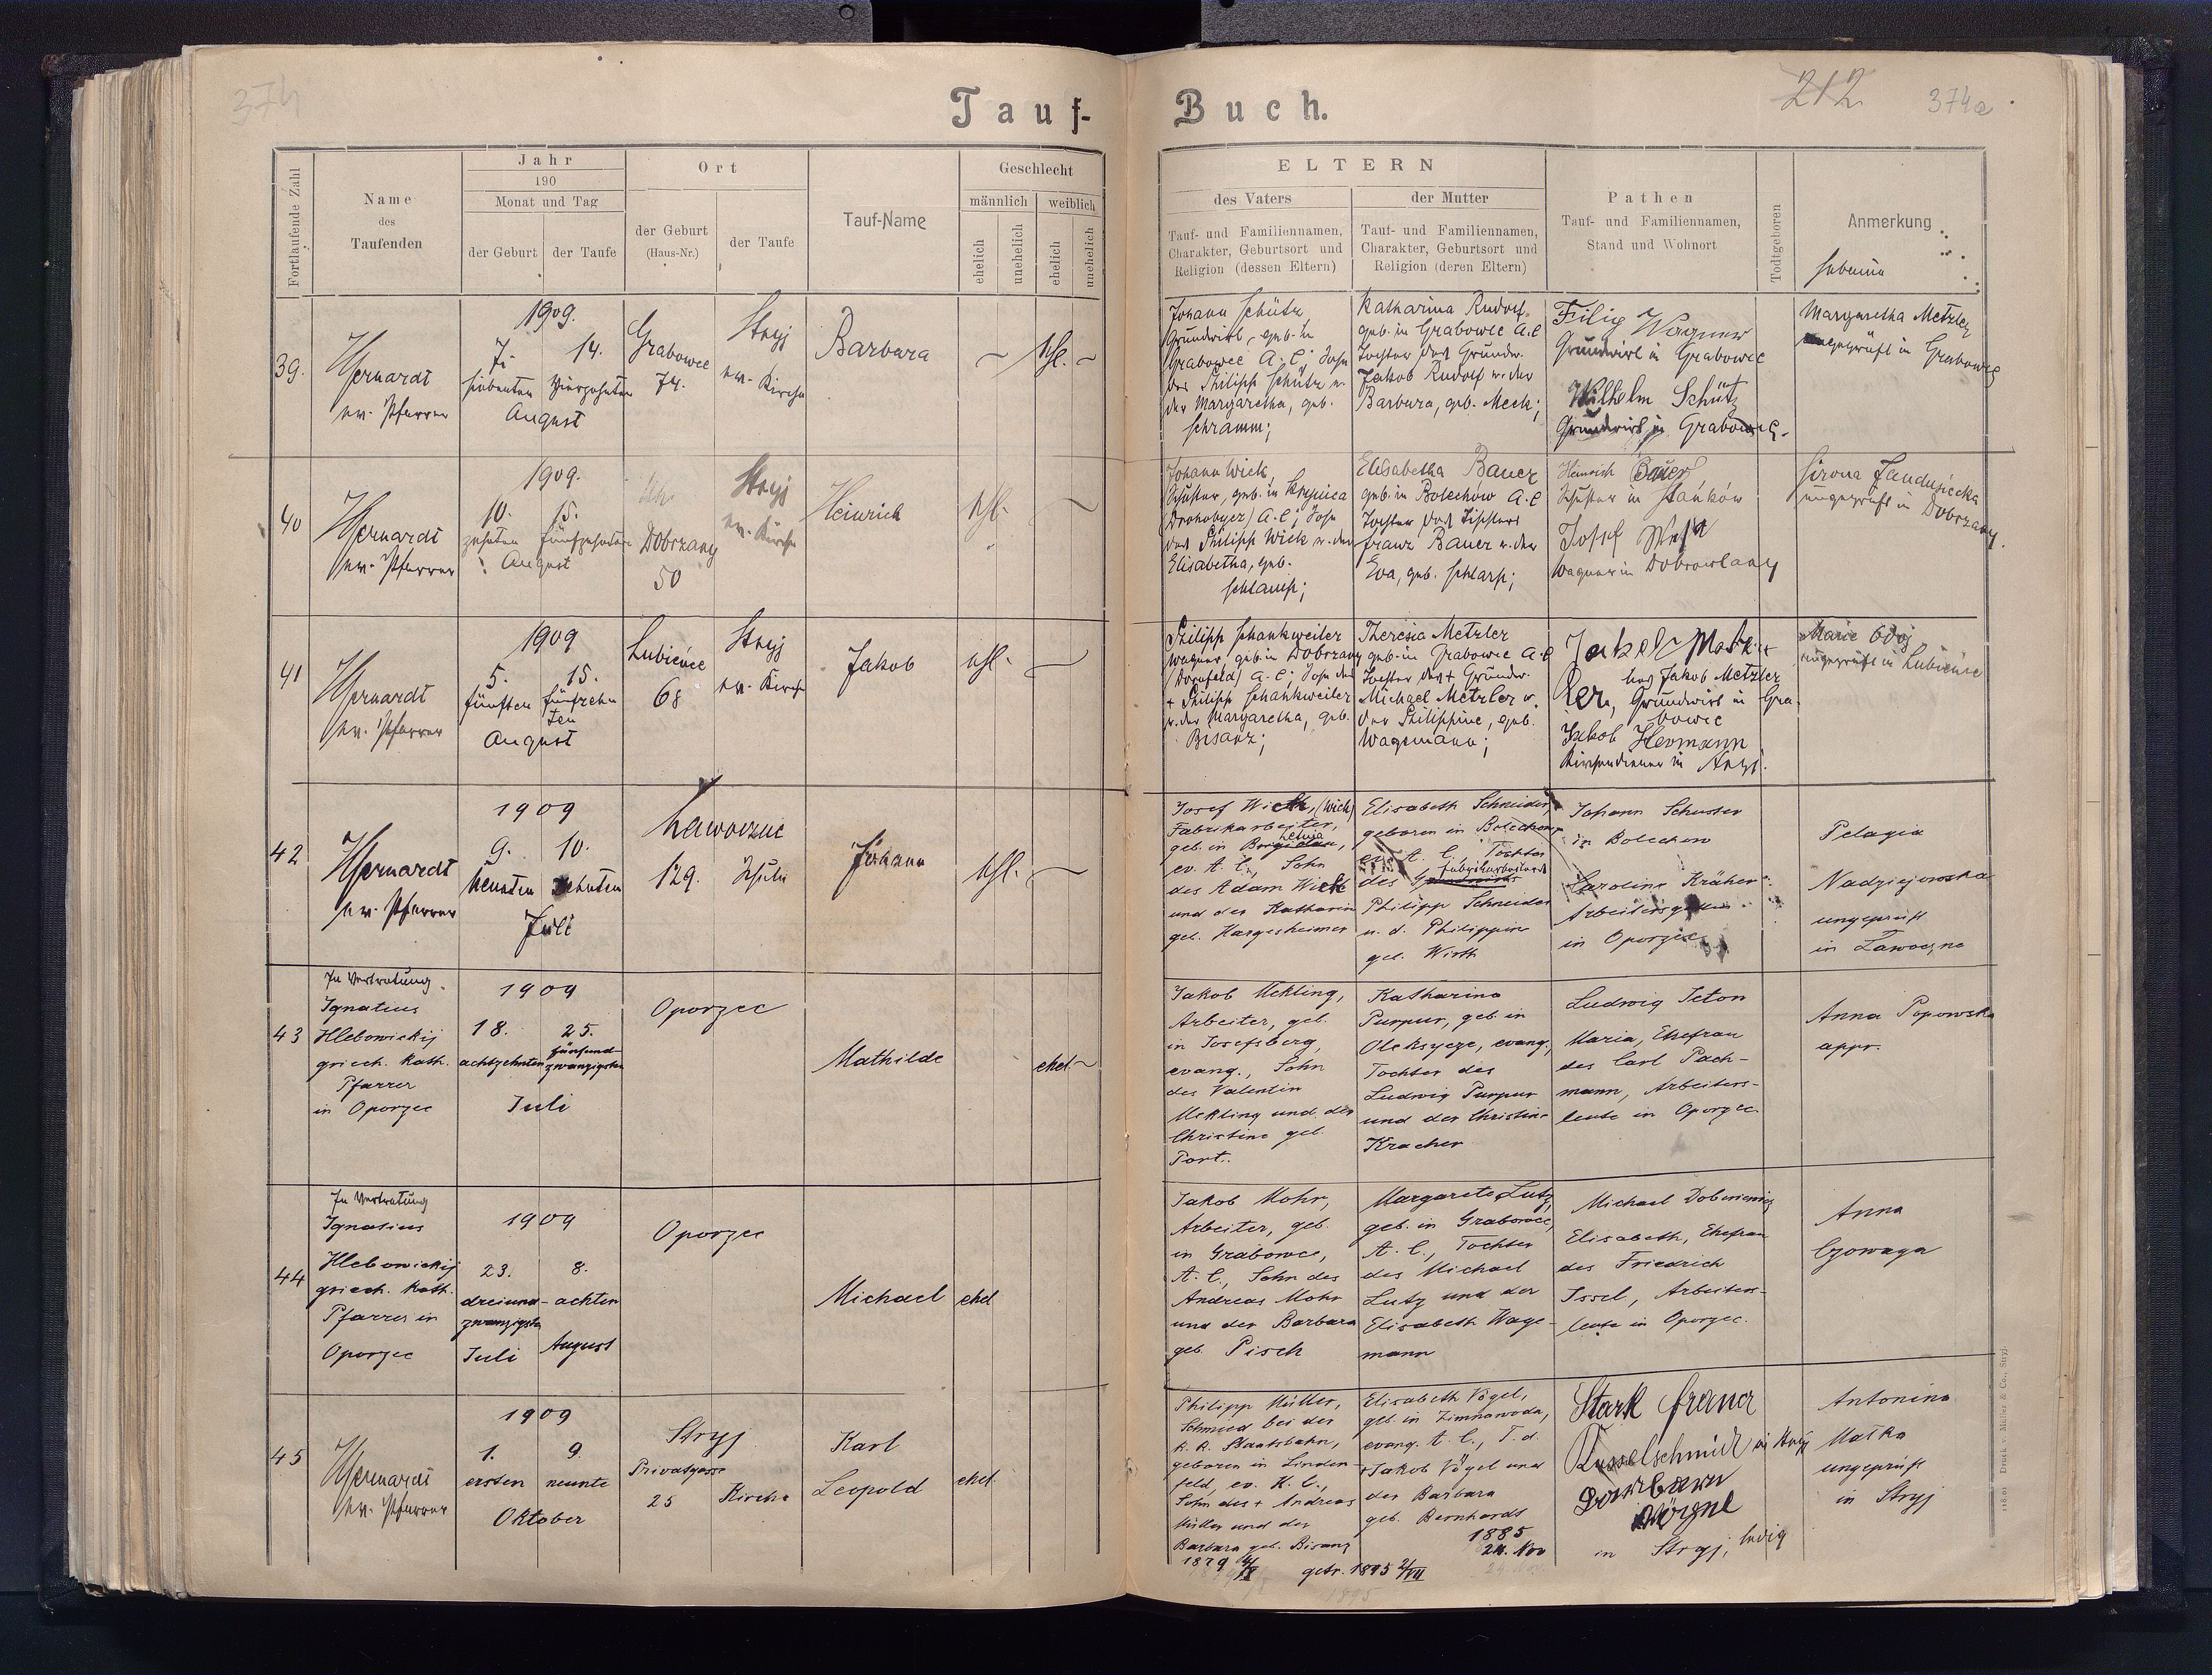 374
Tauf-
Buch.
212
374a
Fortlaufende Zahl
Name
des
Taufenden
Jahr
190
Monat und Tag
der Geburt
der Taufe
Ort
der Geburt
(Haus-Nr.)
der Taufe
Tauf-Name
Geschlecht
männlich
weiblich
ehelich
unehelich
ehelich
unehelich
ELTERN
des Vaters
Tauf- und Familiennamen,
Charakter, Geburtsort und
Religion (dessen Eltern)
der Mutter
Tauf- und Familiennamen,
Charakter, Geburtsort und
Religion (deren Eltern)
Pathen
Tauf- und Familiennamen,
Stand und Wohnort
Todtgeboren
Anmerkung
39.
ev. Pfarrer
1909.
7.
14.
siebenten
vierzehnten
August
Grabowce
74.
Stryj
ev. Kirche
Barbara
ehl.
Johann Schütz
Grundwirt, geb. in
Grabowce A.C; Sohn
des Philipp Schütz u.
der Margaretha, geb.
Schramm;
Katharina Rudolf,
geb. in Grabowce A.C
Tochter des Grundw.
Jakob Rudolf u. der
Barbara, geb. Meck;
Filig Wagner
Grundwirt in Grabowce
Wilhelm Schütz
Grundwirt in Grabowce.
Margaretha Metzler
ungeprüft in Grabowce
40
ev. Pfarrer
1909.
10.
15.
zehnten
fünfzehnten
August
Dobrzany
50
Stryj
ev. Kirche
Heinrich
ehl.
Johann Wick,
Schuster, geb. in
A.C; Sohn
des Philipp Wick u. der
Elisabetha, geb.
Elisabetha Bauer
geb. in Bolechów A.C
Tochter des Tischlers
Franz Bauer u. der
Eva, geb.
Heinrich Bauer
Schuster in Stańków
Josef
Wagner in Dobrowlany
ungeprüft in Dobrzany.
41
ev. Pfarrer
1909
5.
15.
fünften
fünfzehn
ten
August
Lubieńce
68
Stryj
ev. Kirche
Jakob
ehl.
Philipp Schankweiler
Wagner, geb. in Dobrzany
(Dornfeld) A.C; Sohn des
+ Philipp Schankweiler
u. der Margaretha, geb.
Bisanz;
Theresia Metzler
geb. in Grabowce A.C
Tochter des + Grundw.
Michael Metzler u.
der Philippine, geb.
Wagemann;
Jakob Metzler
Grundwirt in Gra-
bowce
Jakob Hermann
Kirchendiener in Stryj.
Marie
ungeprüft in Lubieńce
42
ev. Pfarrer
1909
9.
10.
neunten
zehnten
Juli
Lawoczne
129.
Schule
Johann
ehl.
Josef Wick, (Wick)
Fabrikarbeiter,
geb. in
ev. A. C., Sohn
des Adam Wick
und der Katharin
geb. Hargesheimer
Elisabeth Schneider,
geboren in Bolechow
ev. A. C. Tochter
des Fabriksarbeiters
Philipp Schneider
u. d. Philippin
geb. Wirth
Johann Schuster
in Bolechow
Caroline Kräher
in Oporzec
Pelagia
Nadziejowska
ungeprüft
in Ławoczne
43
In Vertretung
Ignatius
Hlebowickij
griech. kath.
Pfarrer
in Oporzec
1909
18.
25.
achtzehnten
fünfund-
zwanzigsten
Juli
Oporzec
Mathilde
ehel.
Jakob Mekling,
Arbeiter, geb.
in Josefsberg,
evang., Sohn
des Valentin
Mekling und der
Christine geb.
Port.
Katharina
Purpur, geb. in
Oleksyeze, evang.,
Tochter des
Ludwig Purpur
und der Christine
Kracher
Ludwig Jeton
Maria, Ehefrau
des Carl Pach-
mann, Arbeiters-
leute in Oporzec.
Anna Popowska
appr.
44
In Vertretung
Ignatius
Hlebowickij
griech. kath.
Pfarrer in
Oporzec
1909
23.
8.
dreiund-
zwanzigsten
achten
Juli
August
Oporzec
Michael
ehel
Jakob Mohr,
Arbeiter, geb.
in Grabowce,
A. C., Sohn des
Andreas Mohr
und der Barbara
geb. Pisch
Margarete Lutz,
geb. in Grabowce,
A. C., Tochter
des Michael
Lutz und der
Elisabeth Wage-
mann
Michael
Elisabeth, Ehefrau
des Friedrich
Issel, Arbeiters-
leute in Oporzec.
Anna
Czowaga
45
ev. Pfarrer
1909
1.
9.
ersten
neunte
Oktober
Stryj
Privatgasse
25
Kirche
Karl
Leopold
ehel.
Philipp Müller,
Schmied bei der
k. k. Staatsbahn,
geboren in Linden-
feld, ev. K. C.,
Sohn des + Andreas
Müller und der
Barbara geb. Bisanz
Elisabeth Vögel,
geb. in Zimnawoda,
evang. A. C., T. d.
+ Jakob Vögel und
der Barbara
geb. Bernhardt
1885
24. Nov
getr. 1895 2/VII
Stark Franz
Kesselschmidt in Stryj
Barbara
in Stryj, ledig
Antonina
Matka
ungeprüft
in Stryj
Druck v. Müller & Co., Stryj.